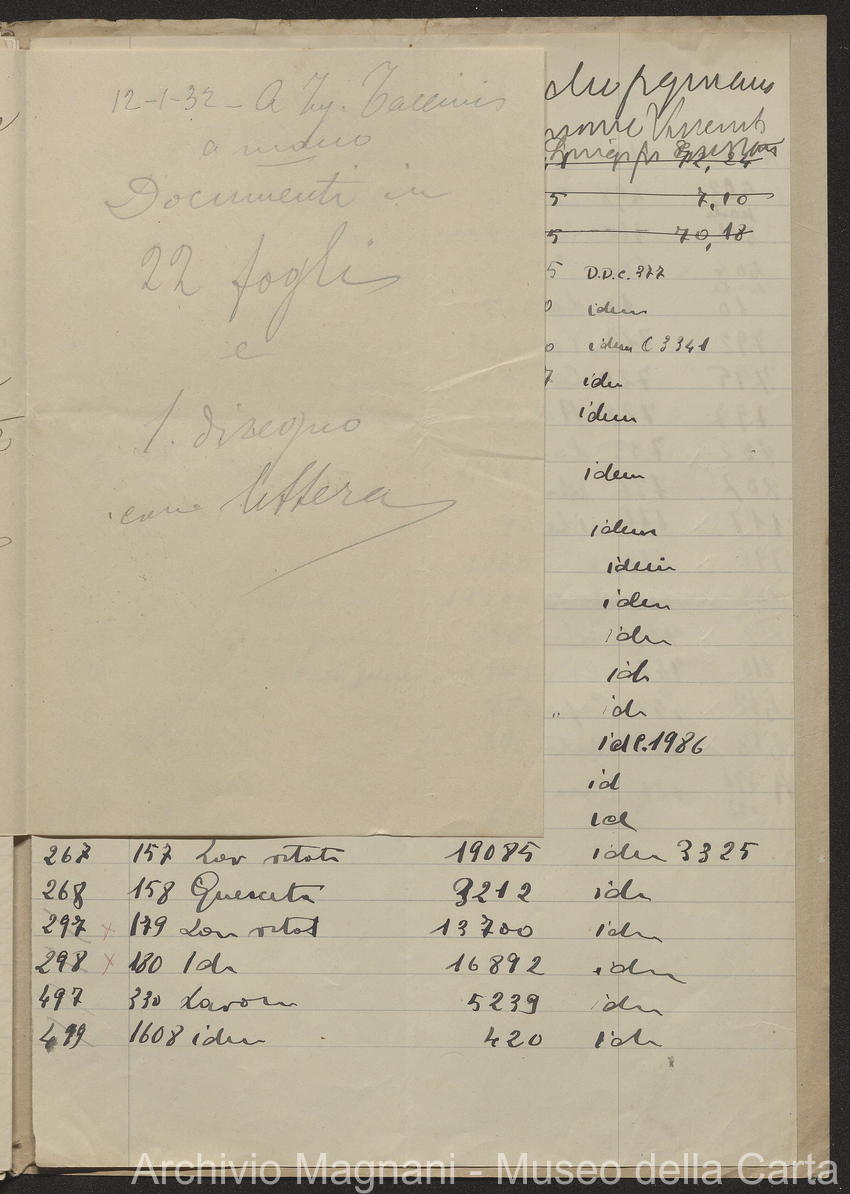 12-1-32 - A
a mano
Documenti in
22 fogli
e
1. disegno
come lettera
72,24
5 7,10
5 70,18
5 D.D.C. 377
0 idem
0 idem C 3341
7 idem
idem
idem
idem
idem
idem
idem
id
id
id C. 1986
id
id
267 157 Lav 19085 idem 3325
268 158 Querceta 3212 idem
297 x 179 Lav 13700 idem
298 x 180 Id 16892 idem
497 330 Lavori 5239 idem
499 1608 idem 420 id
Archivio Magnani - Museo della Carta